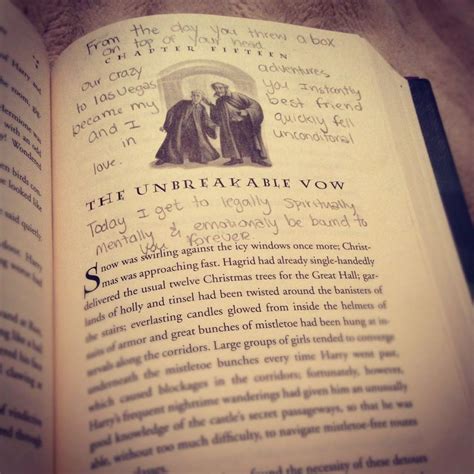 From the day you threw a box
on top of your head
CHAPTER FIFTEEN
our crazy adventures
to las Vegas you instantly
became my best friend
and I quickly fell
in unconditional
love.
THE UNBREAKABLE VOW
Today I get to legally spiritually
mentally & emotionally be bound to
you forever.
Snow was swirling against the icy windows once more; Christ-
mas was approaching fast. Hagrid had already single-handedly
delivered the usual twelve Christmas trees for the Great Hall; gar-
lands of holly and tinsel had been twisted around the banisters of
the stairs; everlasting candles glowed from inside the helmets of
suits of armor and great bunches of mistletoe had been hung at in-
tervals along the corridors. Large groups of girls tended to converge
underneath the mistletoe bunches every time Harry went past,
which caused blockages in the corridors; fortunately, however,
Harry's frequent nighttime wanderings had given him an unusually
good knowledge of the castle's secret passageways, so that he was
able, without too much difficulty, to navigate mistletoe-free routes
of these detours